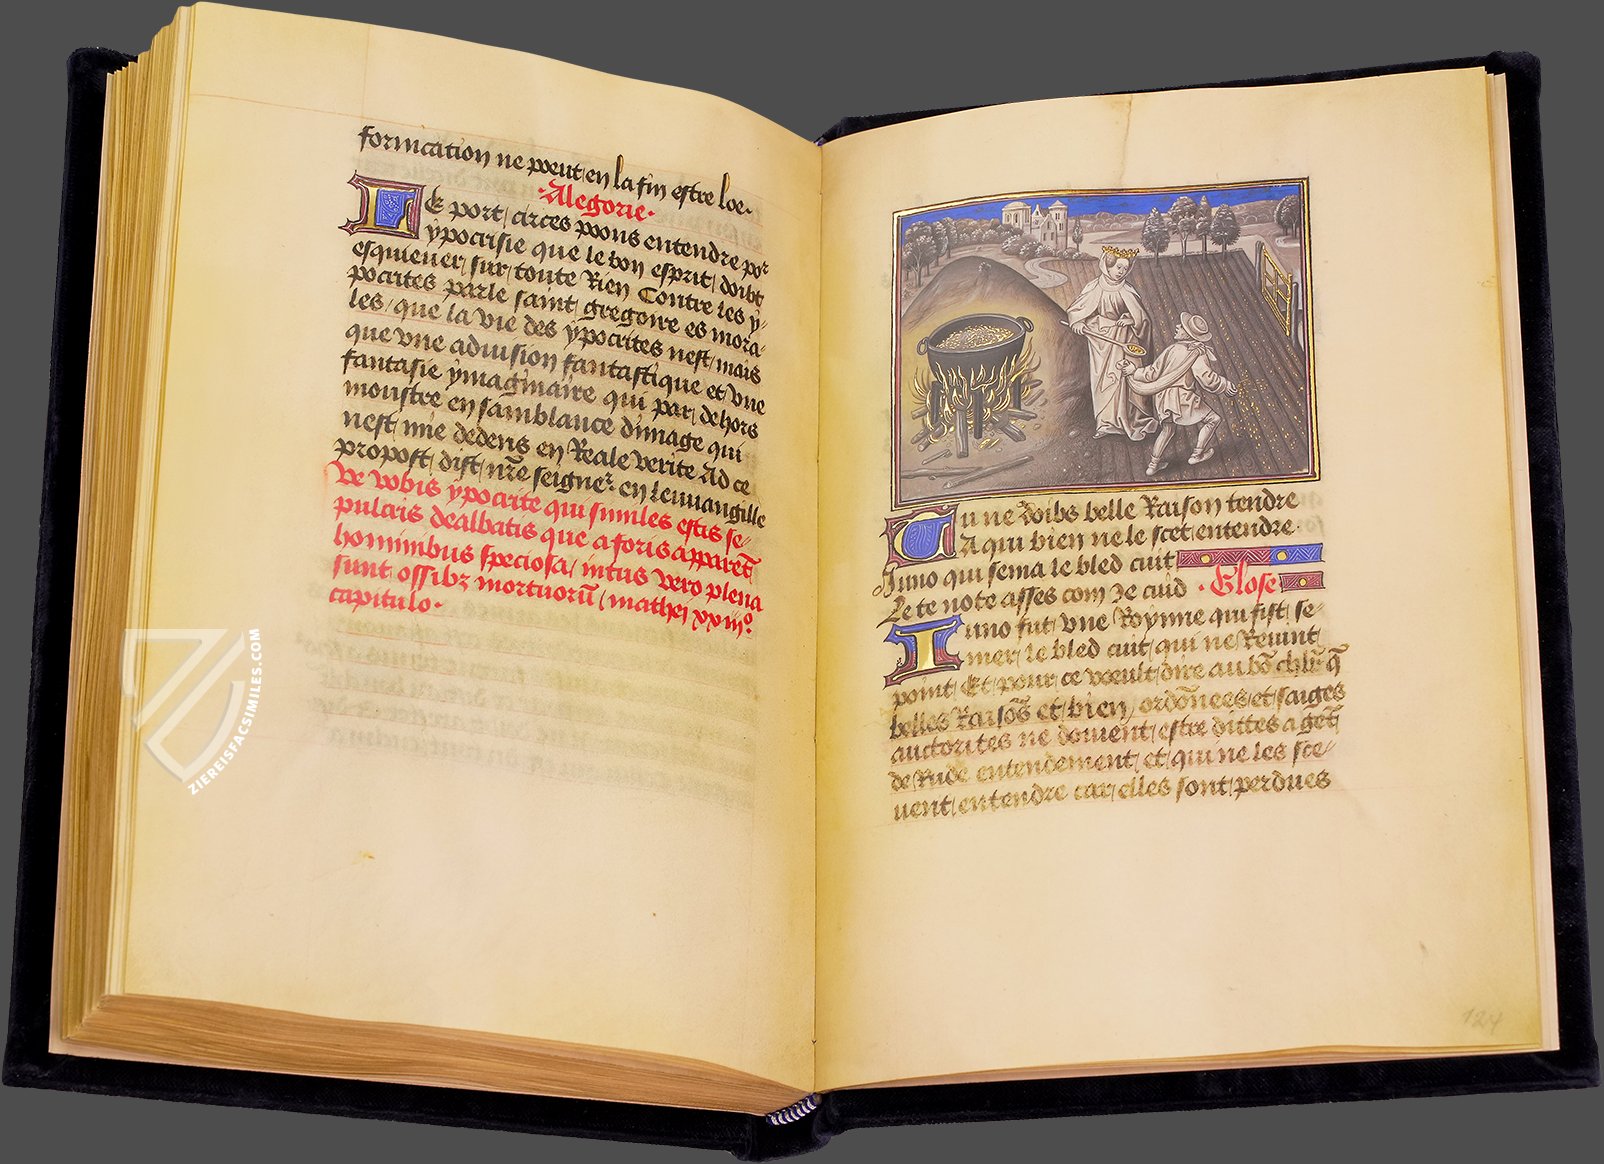 formication ne poeut en la fin estre loe.
·Alegorie·
LE port circes poons entendre por
ypocrisie que le bon esprit doibt
esquieuer sur toute Rien Contre les y-
pocrites parle saint gregoire es mora-
les que la vie des ypocrites nest mais
que vne aduision fantastique et vne
fantasie ymaginaire qui par dehors
monstre en samblance dimage qui
nest mie dedens en Reale verite Ad ce
propost dist nr̃e seigne᷑ en leuuangille
Ve vobis ypocrite qui similes estis se-
pulcris dealbatis que a foris apparẽt
hominibus speciosa intus vero plena
sunt ossibz mortuorũ mathei xxiijº
capitulo·
Tu ne doibs belle Raison tendre
A qui bien ne le scet entendre·
Juno qui sema le bled cuit
Le te note asses com Je cuid ·Glose
Iuno fut vne Royne qui fist se-
mer le bled cuit qui ne Reuint
point Et pour ce voeult dire au bõ chlr̃ q̃
belles Raisõs et bien ordõnees et saiges
auctorites ne doiuent estre dittes a gẽt
de Rude entendement et qui ne les sce-
uent entendre car elles sont perdues
124
ZIEREISFACSIMILES.COM